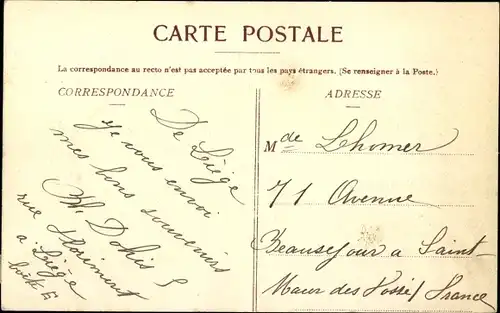 CARTE POSTALE
La correspondance au recto n'est pas acceptée par tous les pays étrangers. (Se renseigner à la Poste.)
CORRESPONDANCE
De Liège
je vous envoi
mes bons souvenirs
rue Florimont
a Liège
ADRESSE
Mde Lhomer
71 Avenue
Beausejour a Saint-
Maur des Fossé/ France